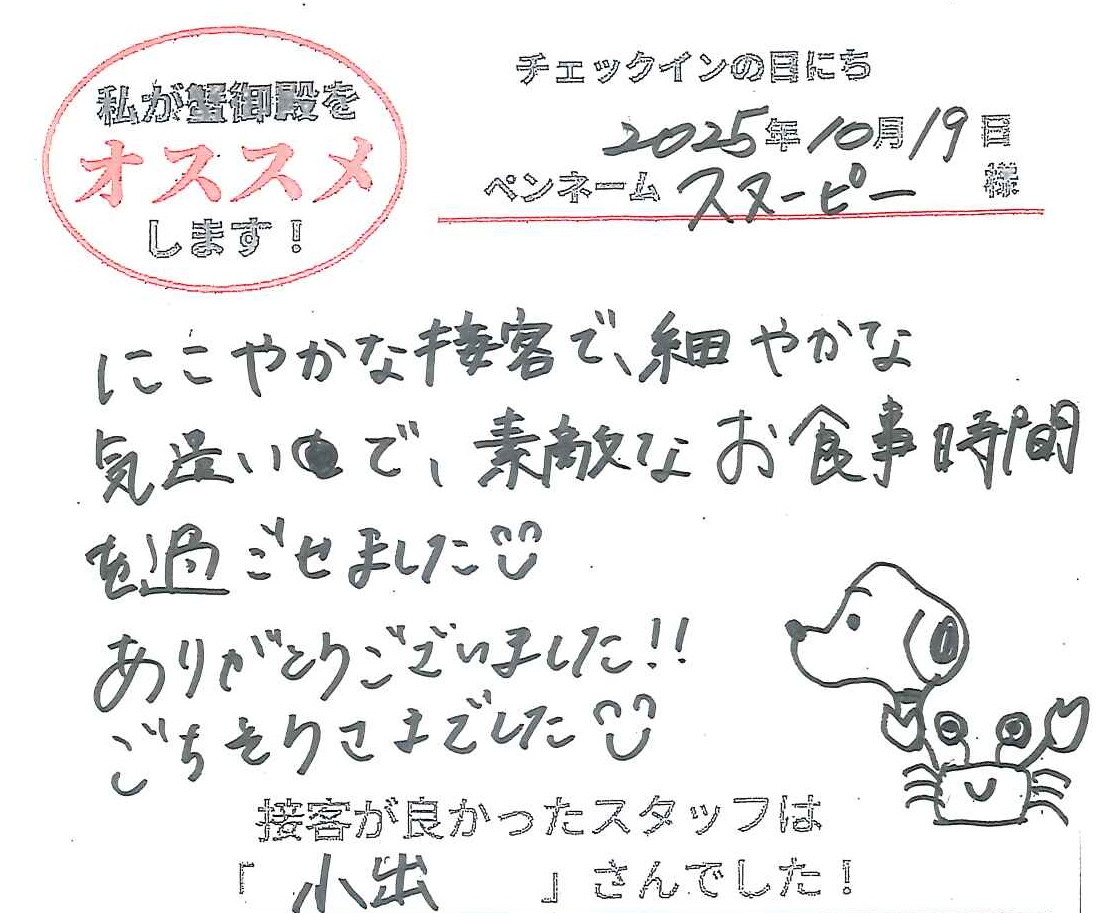 私が蟹御殿を
オススメ
します！
チェックインの日にち
2025年10月19日
ペンネーム スヌーピー 様
にこやかな接客で、細やかな
気遣いで、素敵なお食事時間
を過ごせました
ありがとうございました!!
ごちそうさまでした
接客が良かったスタッフは
「小出」さんでした！